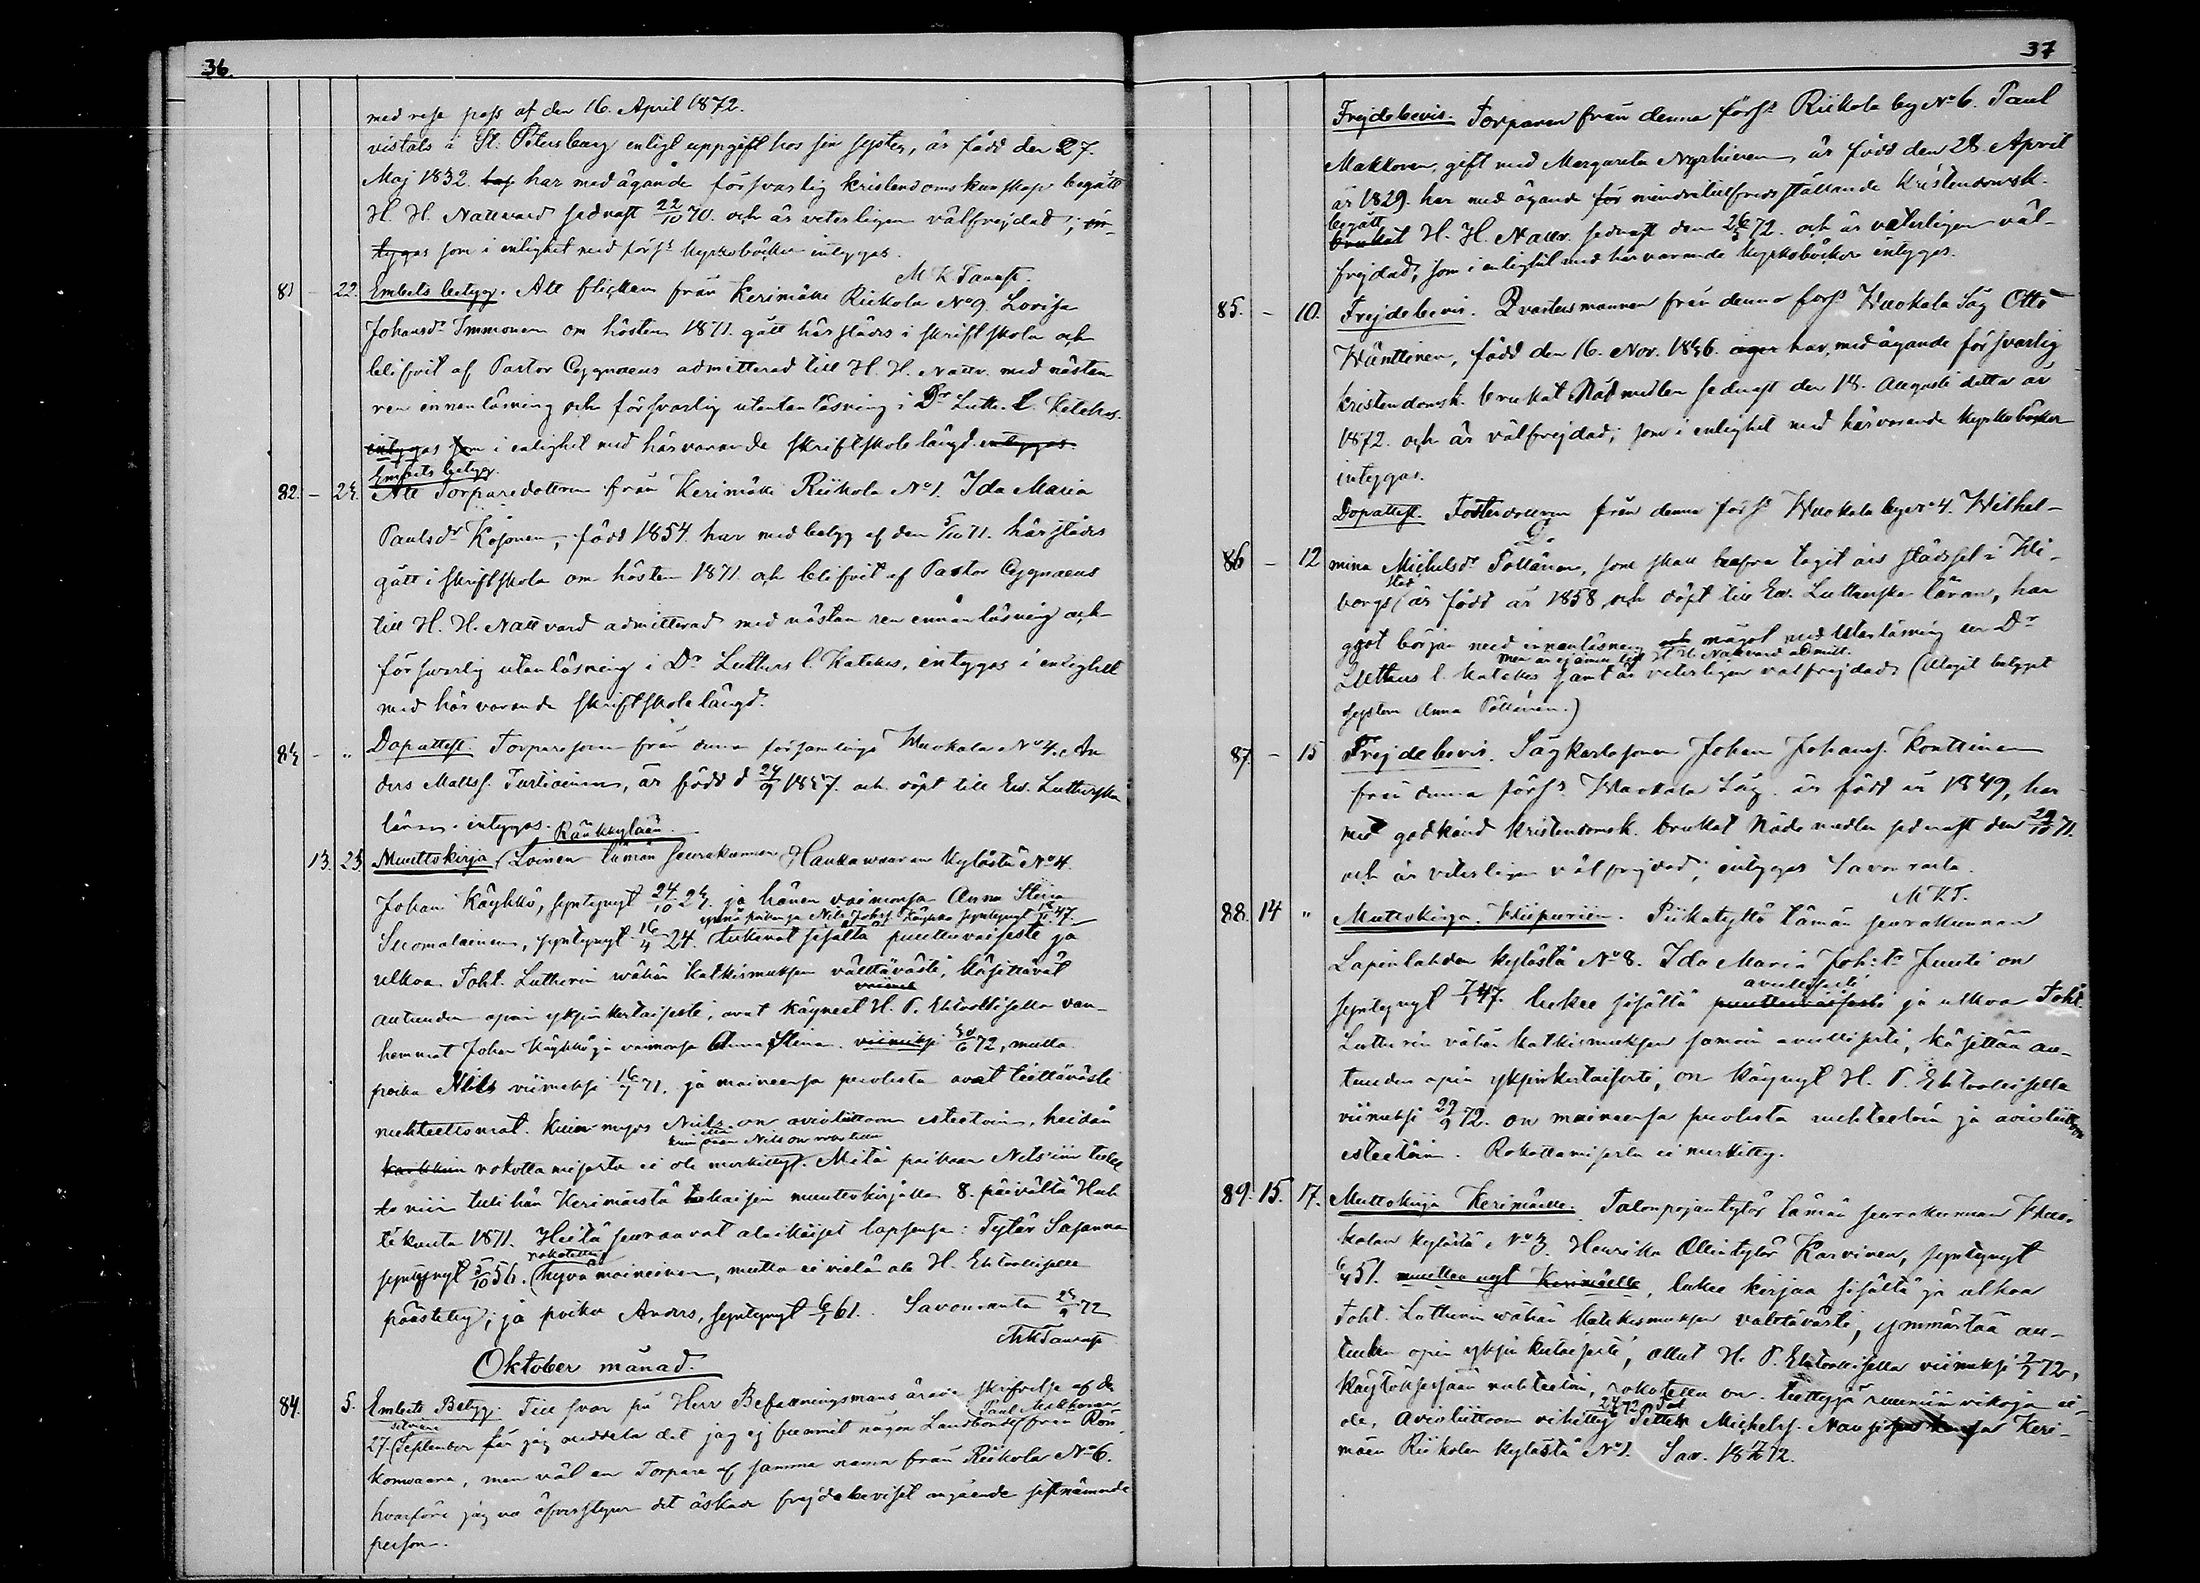 36.
med rese pass af den 16. April 1872.
vistats i St. Petersburg enligt uppgift hos sin syster, är född den 27.
Maj 1832. har med ägande försvarlig kristendomskunskap begått
H. H. Nattvard sednast 22/10 70. och är veterligen välfrejdad; in-
tygas som i enlighet med förs:s kyrkoböcker intygas.
M K Tavast.
81 - 22. Embets betyg. Att flickan från Kerimäki Riikola No 9. Lovisa
Johansd:r Immonen om hösten 1871. gått härstädes i skriftskola och
blifvit af Pastor Cygnaeus admitterad till H. H. Nattv. med nästan
ren innanläsning och försvarlig utantanläsning i D:r Luth. L. Katekes.
intygas som i enlighet med härvarande skriftskole längd. intygas.
Embets betyg.
82. - 24. Att Torparedottren från Kerimäki Riikola No 1. Ida Maria
Paulsd:r Kosonen, född 1854. har med betyg af den 5/10 71. härstädes
gått i skriftskola om hösten 1871. och blifvit af Pastor Cygnaeus
till H. H. Nattvard admitterad med nästan ren innanläsning och
försvarlig utanläsning i D:r Luthers l. Katekes, intygas i enlighet
med härvarande skriftskolelängd.
83 - " Dopattest. Torparesonen från denna församlings Wuokala No 4. An
ders Matts. Turtiainen, är född d 24/9 1857. och döpt till Ev. Lutherska
läran. intygas. Rääkkylään.
13. 23. Muuttokirja. Loinen tämän seurakunnan Haukawaaran kylästä No 4.
Johan Käykkö, syntynyt 24/10 23. ja hänen vaimonsa Anna Stina
ynnä poikansa Nils Johs. Käykkö syntynyt 47.
Suomalainen, syntynyt 16/4 24. lukevat sisältä puuttuvaisesti ja
ulkoa Toht. Lutherin wähän katkismuksen välttävästi, käsittävät
autuuden opin yksinkertaisesti, ovat käyneet H. P. Ehtoollisella van-
hemmat Johan Käykkö ja vaimonsa Anna Stina viimeksi 30/6 72, mutta
poika Nils viimeksi 16/7 71. ja maineensa puolesta ovat tiettävästi
nuhteettomat. Kuin myös Nils on avioliittoon esteetöin, heidän
rokottamisesta ei ole merkitty. Mitä poikaan Nils'iin tulee
to niin tuli hän Kerimäestä takaisin muuttokirjalla 8. päivältä Huh
tikuuta 1871. Heitä seuraavat alaikäiset lapsensa: Tytär Susanna
rokotettu
syntynyt 5/10 56. hyvämaineinen, mutta ei vielä ole H. Ehtoolliselle
päästetty; ja poika Anders, syntynyt 6/1 61. Savonranta 25/9 72
MKTavast
Oktober månad.
84. 5. Embets Betyg. Till svar på Herr Befallningsmans ärade skrifvelse af d.
27. September får jag meddela det jag ej funnit någon Landbonde Paul Makkonen från Ron-
konvaara, men väl en Torpare af samma namn från Riikola No 6.
hvarföre jag nu öfverstyrer det äskade frejdebeviset angående sistnämnde
person.
37
Frejdebevis. Torparen från denna förs:s Riikola by No 6. Paul
Makkonen, gift med Margareta Nyrhinen, är född den 28. April
år 1829. har med ägande för mindre tillfredsställande Kristendomsk.
begått
brukat H. H. Nattv. sednast den 26/5 72. och är veterligen väl-
frejdad, som i enlighet med härvarande kyrkoböcker intygas.
85. - 10. Frejdebevis. Qvastusmannen från denna förs:s Wuokala Såg Otto
Wänttinen, född den 16. Nov. 1836. äger har med ägande försvarlig
kristendomsk. brukat Nådmedlen sednast den 18. Augusti detta år
1872. och är välfrejdad; som i enlighet med härvarande kyrkoböcker
intygas.
Dopattest. Fosterdottren från denna förs:s Wuokala by No 4. Wilhel-
86 - 12 mina Michelsd:r Pöllänen, som skall hafva taget sig städsel i Wi-
borgs stad är född år 1858 och döpt till Ev. Lutherska läran, har
gjort början med innanläsning och något med utanläsning ur D:r
men är ej ännu till H. H. Nattvard admitt.
Luthers l. Katekes samt är veterligen välfrejdad. (Uttagit betyget
systern Anna Pöllänen.)
87. - 15 Frejdebevis. Sågkarlssonen Johan Johans. Konttinen
från denna förs:s Wuokala Såg. är född år 1849, har
med godkänd kristendomsk. brukat Nådemedlen sednast den 29/10 71.
och är veterligen välfrejdad; intygas Savonranta.
M K T.
88. 14 " Muttokirja. Wiipuriin. Piikatyttö tämän seurakunnan
Lapinlahden kylästä No 8. Ida Maria Joh:tr Juuti on
avullisesti
syntynyt 7/1 47. lukee sisältä puuttuvaisesti ja ulkoa Toht.
Lutherin vähän katkismuksen samoin avullisesti, käsittää au-
tuuden opin yksinkertaisesti, on käynyt H. P. Ehtoollisella
viimeksi 29/9 72. on maineensa puolesta nuhteetoin ja avioliittoon
esteetöin. Rokottamisesta ei merkitty.
89. 15. 17. Muttokirja Kerimäelle. Talonpojantytär tämän seurakunnan Wuo-
kalan kylästä No 3. Henrika Ollintytär Karvinen, syntynyt
6/4 51. muuttanut Kerimäelle, lukee kirjaa sisältä ja ulkoa
Toht. Lutherin wähän Katekismuksen välttävästi, ymmärtää au-
tuuden opin yksinkertaisesti, ollut H. P. Ehtoollisella viimeksi 7/7 72,
käytöksessään nuhteetoin, rokotettu on. tiettyjä ruumiin vikoja ei
ole, Avioliittoon vihitty Petter Michels. Nousiaisen kanssa Keri-
mäen Riikolan kylästä No 1. Sav. 72.